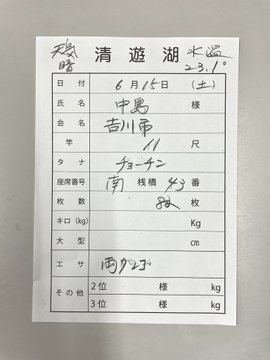 天気 晴 清遊湖 水温 23.1°
日付 6月15日(土)
氏名 中島 様
会名 吉川市
竿 11 尺
タナ チョーチン
座席番号 南 桟橋 43番
枚数 82枚
キロ(kg) Kg
大型 cm
エサ 両ダンゴ
その他 2位 様 kg
3位 様 kg